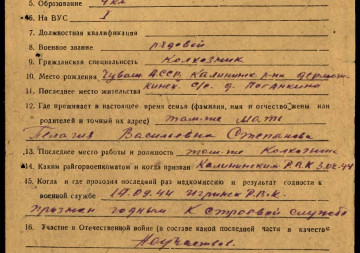 5. Образование 4 кл
6. На ВУС 1
7. Должностная квалификация
8. Военное звание рядовой
9. Гражданская специальность Колхозник
10. Место рождения Чуваш АССР, Калининск р-на
11. Последнее место жительства кинск. с/с. д.
12. Где проживает в настоящее время семья (фамилия, имя и отчество жены или
родителей и точный их адрес) там-же мать
Пелагия Васильевна Степанова
13. Последнее место работы и должность там-же Колхозник
14. Каким райгорвоенкоматом и когда призван Калининским Р.В.К
15. Когда и где проходил последний раз медкомиссию и результат годности к
военной службе 19.09.44 Р.В.К.
признан годным к строевой службе
16. Участие в Отечественной войне (в составе какой последней части в качестве
Неучаствов.